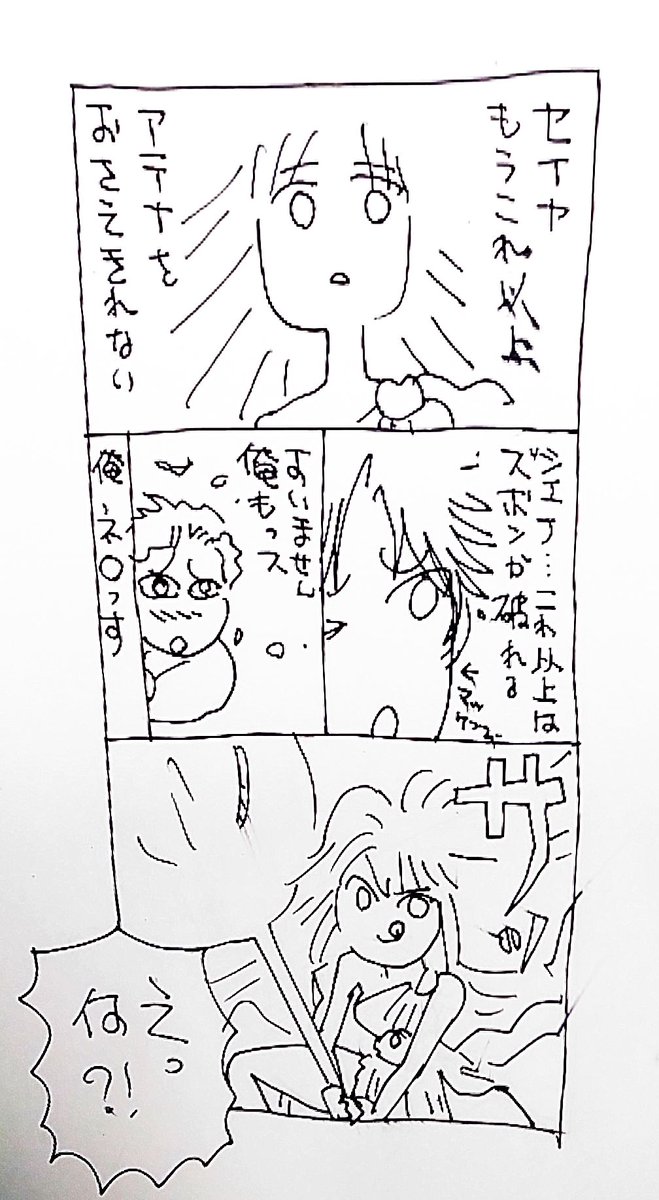 セイヤ
もうこれ以上
アテナを
おさえきれない
シエナ…これ以上は
ズボンが破れる
←マッケンユー
すいません
俺もっス
俺ネ〇っす
ザ
えっ
何?!